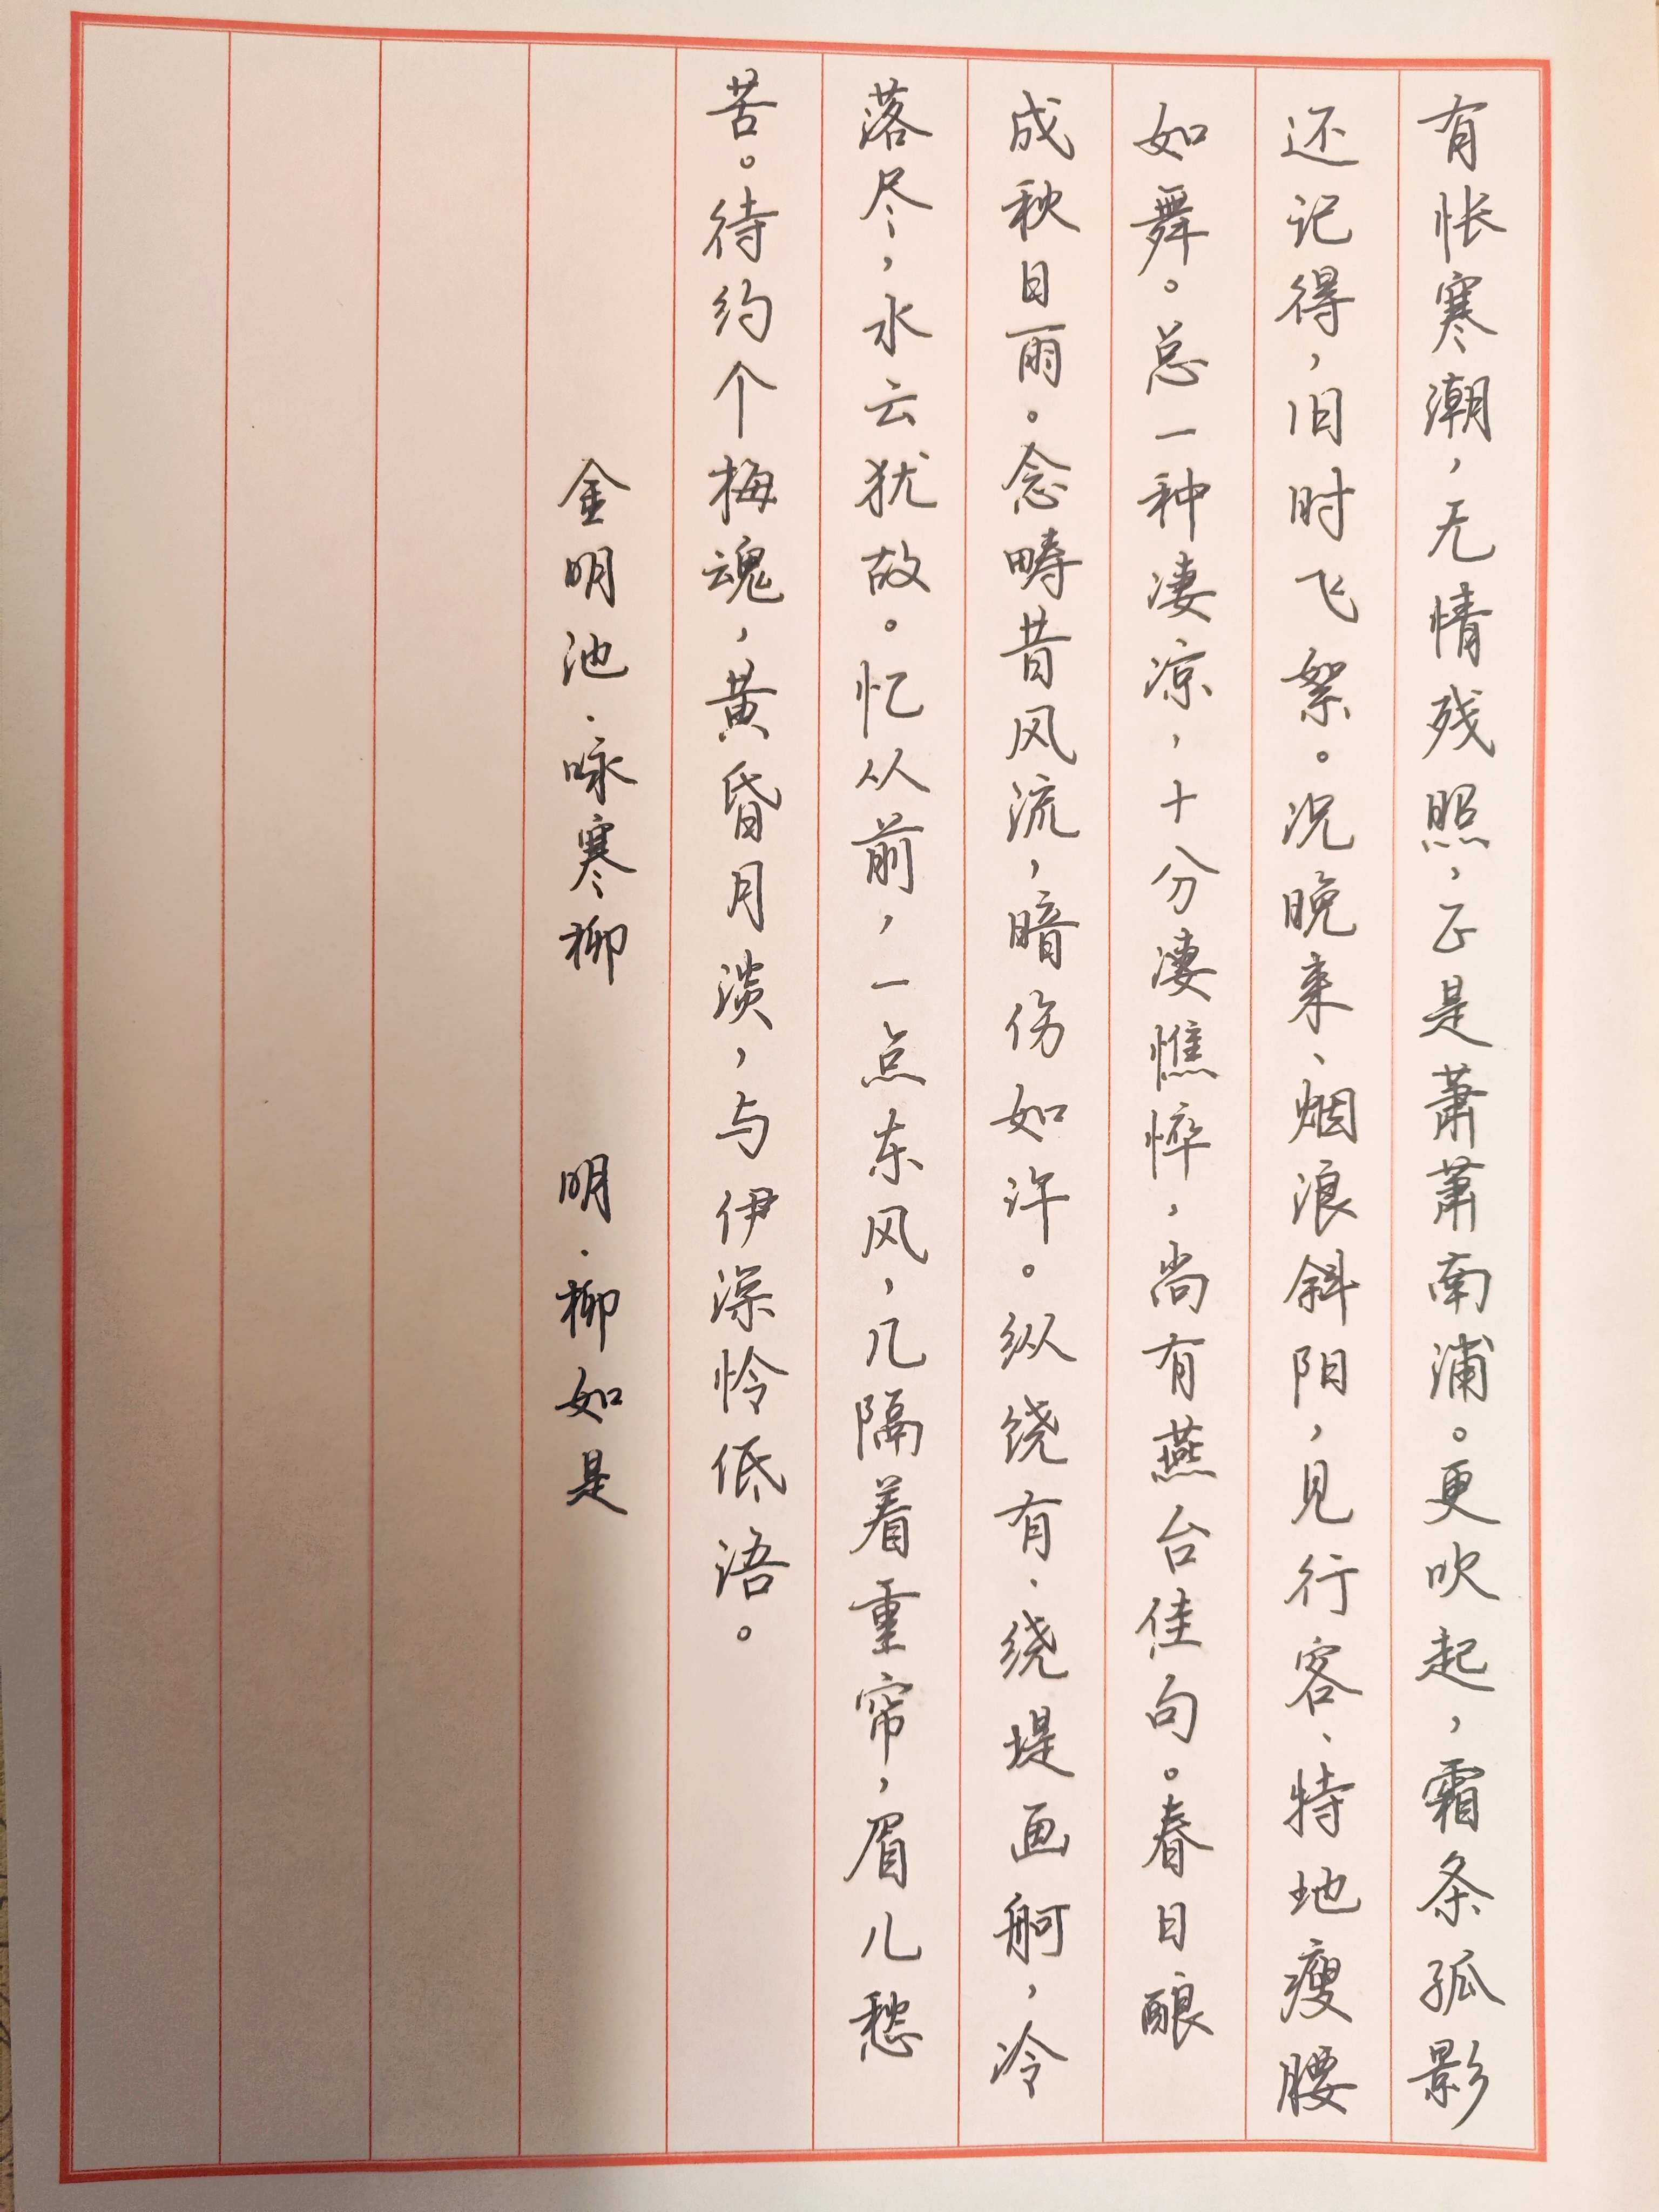 有怅寒潮，无情残照，正是萧萧南浦。更吹起，霜条孤影
还记得，旧时飞絮。况晚来、烟浪斜阳，见行客、特地瘦腰
如舞。总一种凄凉，十分凄憔悴，尚有燕台佳句。春日酿
成秋日雨。念畴昔风流，暗伤如许。纵绕有·绕堤画舸，冷
落尽，水云犹故。忆从前，一点东风，几隔着重帘，眉儿愁
苦。待约个梅魂，黄昏月淡，与伊深怜低语。
金明池·咏寒柳 明·柳如是